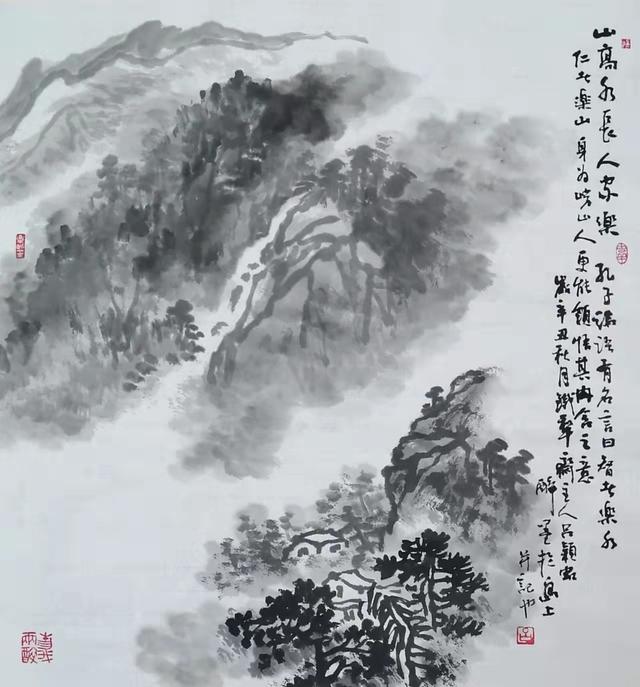 山高水長人家樂 孔子論談有名言曰智者樂水
仁者樂山 身为崂山人更能領悟其內含之意
歲辛丑秋月 齋主人呂穎
醉墨於島上
并記也